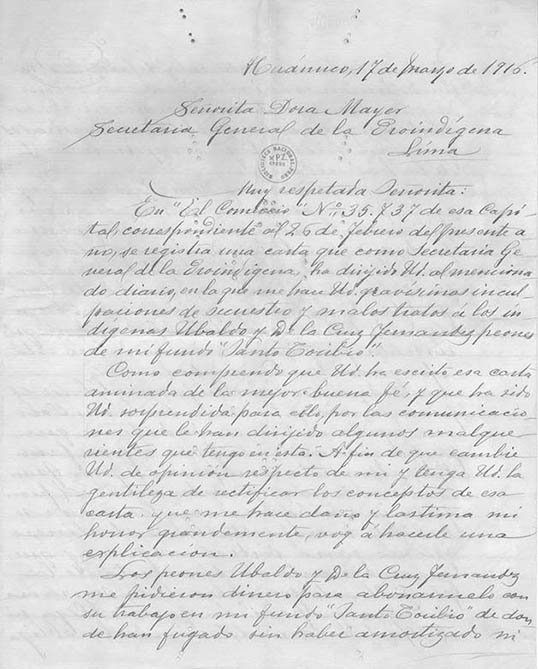 Huánuco, 17 de Mayo de 1916.
Señorita Dora Mayer
Secretaria General de la Proindígena
Lima
BIBLIOTECA NACIONAL
PERU
Muy respetada Señorita:
En "El Comercio" No. 35.737 de esa Capi-
tal, correspondiente al 26 de febrero del presente a
no, se registra una carta que como Secretaria Ge
neral de la Proindígena, ha dirijido Ud. al menciona
do diario, en la que me hace Ud. gravísimas incul
paciones de secuestro y malos tratos a los in
dígenas Ubaldo y De la Cruz Fernandez peones
de mi fundo "Santo Toribio".
Como comprendo que Ud. ha escrito esa carta
animada de la mejor buena fé, y que ha sido
Ud. sorprendida para ello, por las comunicacio-
nes que le han dirijido algunos malque-
rientes que tengo en esta. A fin de que cambie
Ud. de opinión respecto de mi y tenga Ud. la
gentileza de rectificar los conceptos de esa
carta que me hace daño y lastima mi
honor grandemente, voy á hacerle una
explicacion.
Los peones Ubaldo y De la Cruz Fernandez
me pidieron dinero para abonarmelo con
su trabajo en mi fundo "Santo Toribio" de don
de han fugado sin haber amortizado ni